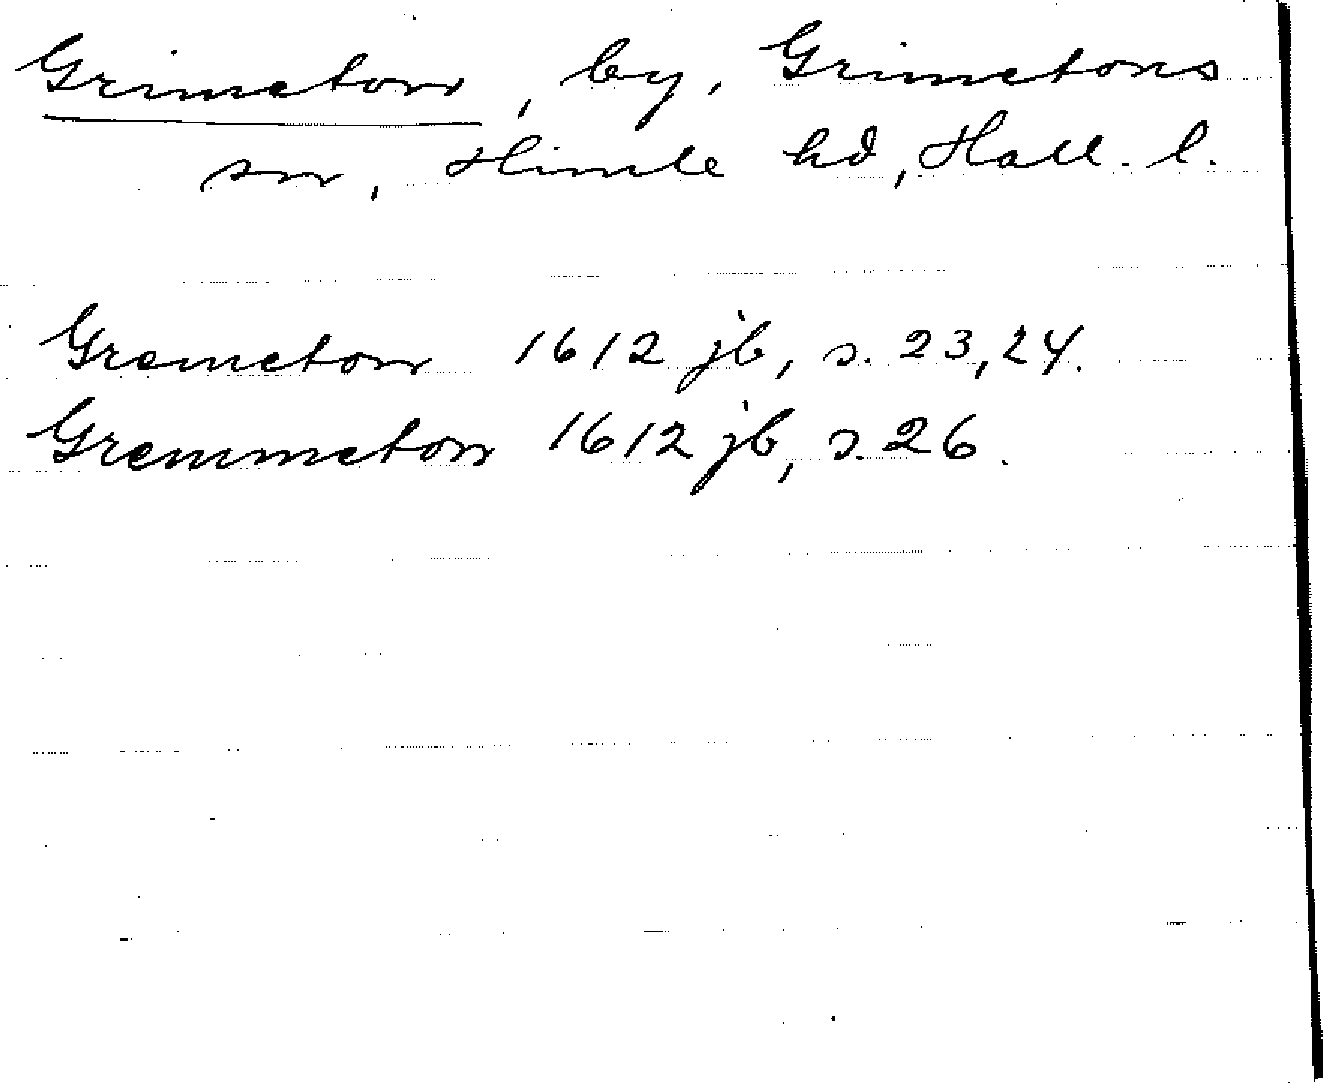 Grimeton, by, Grimetons
sn, Himle hd, Hall. l.
Gremeton 1612 jb, s. 23, 24.
Gremmeton 1612 jb, s. 26.